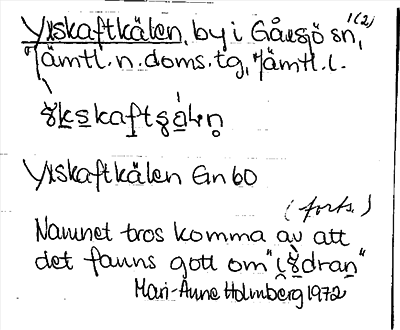 1(2)
Yxskaftkälen, by i Gåxsjö sn,
Jämtl. n. doms. tg, Jämtl. l.
Yxskaftkälen Gn 60
(forts.)
Namnet tros komma av att
det fanns gott om
Mari-Anne Holmberg 1972